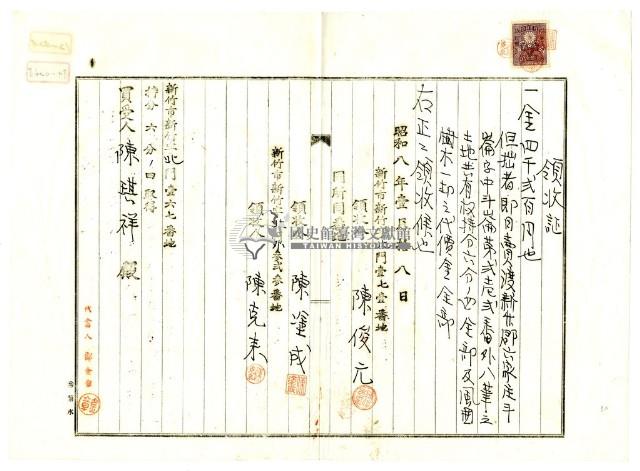 領收証
一金四千貳百円也
但拙者郎目賣渡新竹郡六家庄斗
崙字中斗崙第弍壱弍番外八筆之
土地共有权持分六分ノ四全部及風囲
樹木一切之代價金全部
右正ニ領收候也
昭和八年壹月 八日
新竹市新竹 門壹七壹番地
領收 陳俊元
同所同
領收 陳運成
新竹市新竹 外参弍参番地
領收人 陳克来
新竹市新竹 北門壹六七番地
持分六分ノ四取得
買受人 陳琪祥 殿
代書人 鄭
國史館臺灣文獻館
TAIWAN HISTORICA